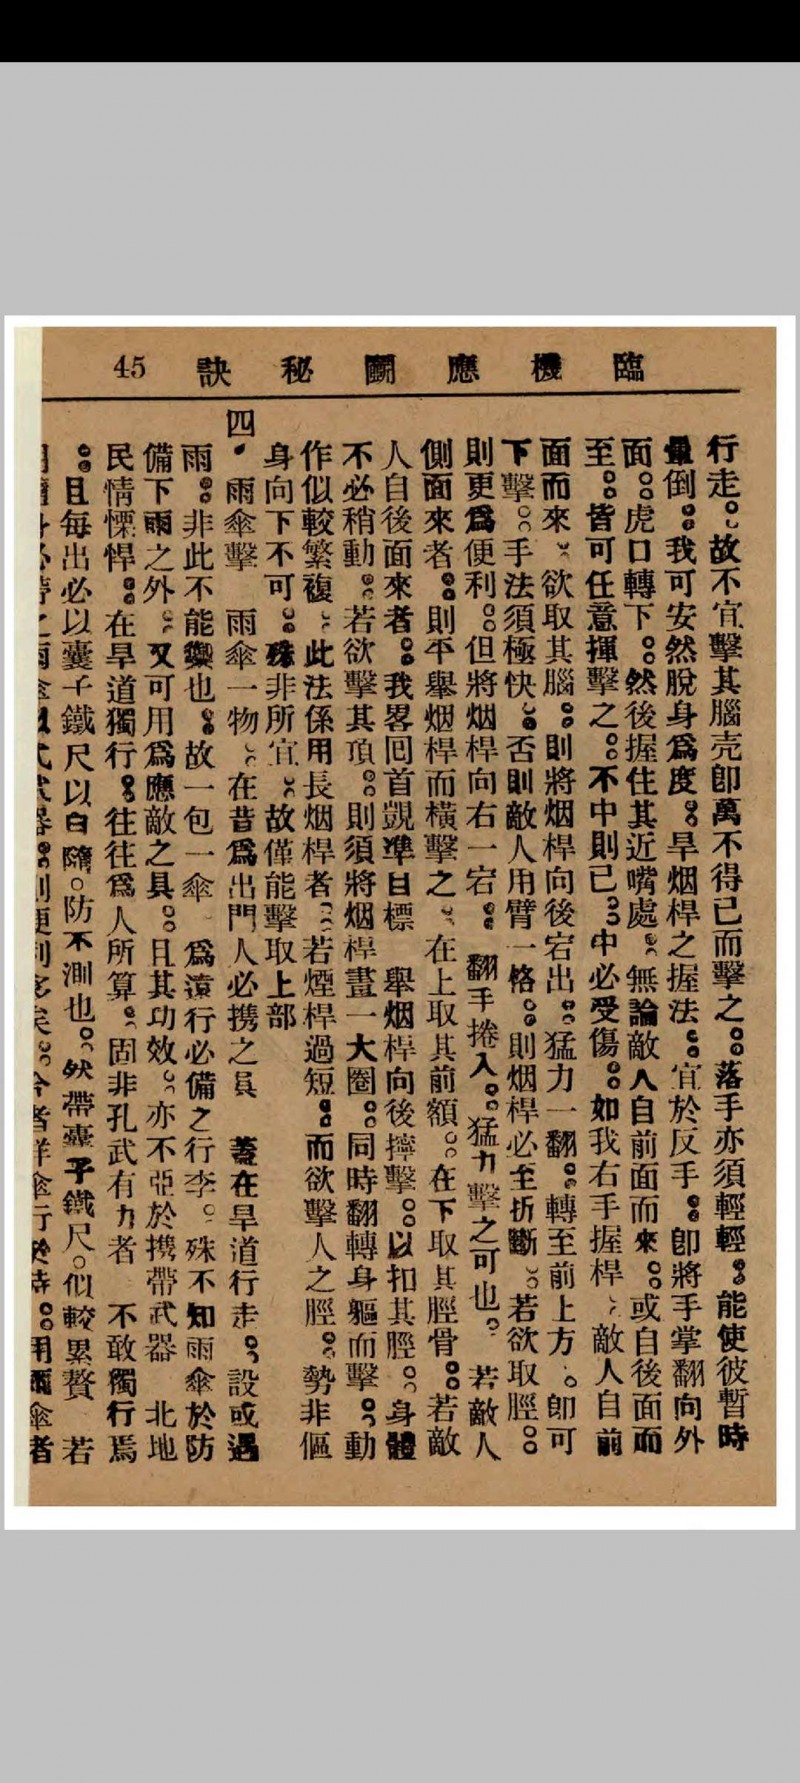 臨機應鬭秘訣 45
行走。故不宜擊其腦壳卽萬不得已而擊之。落手亦須輕輕。能使彼暫時
暈倒。我可安然脫身爲度。旱烟桿之握法。宜於反手。卽將手掌翻向外
面。虎口轉下。然後握住其近嘴處。無論敵人自前面而來。或自後面而
至。皆可任意揮擊之。不中則已。中必受傷。如我右手握桿。敵人自前
面而來。欲取其腦。則將烟桿向後宕出。猛力一翻。轉至前上方。卽可
下擊。手法須極快。否則敵人用臂一格。則烟桿必至折斷。若欲取脛。
則更爲便利。但將烟桿向右一宕。翻手捲入。猛力擊之可也。若敵人
側面來者。則平舉烟桿而橫擊之。在上取其前額。在下取其脛骨。若敵
人自後面來者。我畧回首覬準目標 舉烟桿向後擰擊。以扣其脛。身體
不必稍動。若欲擊其頂。則須將烟桿畫一大圈。同時翻轉身軀而擊。動
作似較繁複。此法係用長烟桿者。若煙桿過短。而欲擊人之脛。勢非傴
身向下不可。殊非所宜。故僅能擊取上部
四。雨傘擊 雨傘一物。在昔爲出門人必携之具 蓋在旱道行走。設或遇
雨。非此不能禦也。故一包一傘 爲遠行必備之行李。殊不知雨傘於防
備下雨之外。又可用爲應敵之具。且其功效。亦不亞於携帶武器 北地
民情慓悍。在旱道獨行。往往爲人所算。固非孔武有力者 不敢獨行焉
。且每出必以囊子鐵尺以自隨。防不測也。然帶囊子鐵尺。似較累贅 若
用隨身必帶之雨傘以代武器。則便利多矣。今者洋傘行於時。用雨傘者